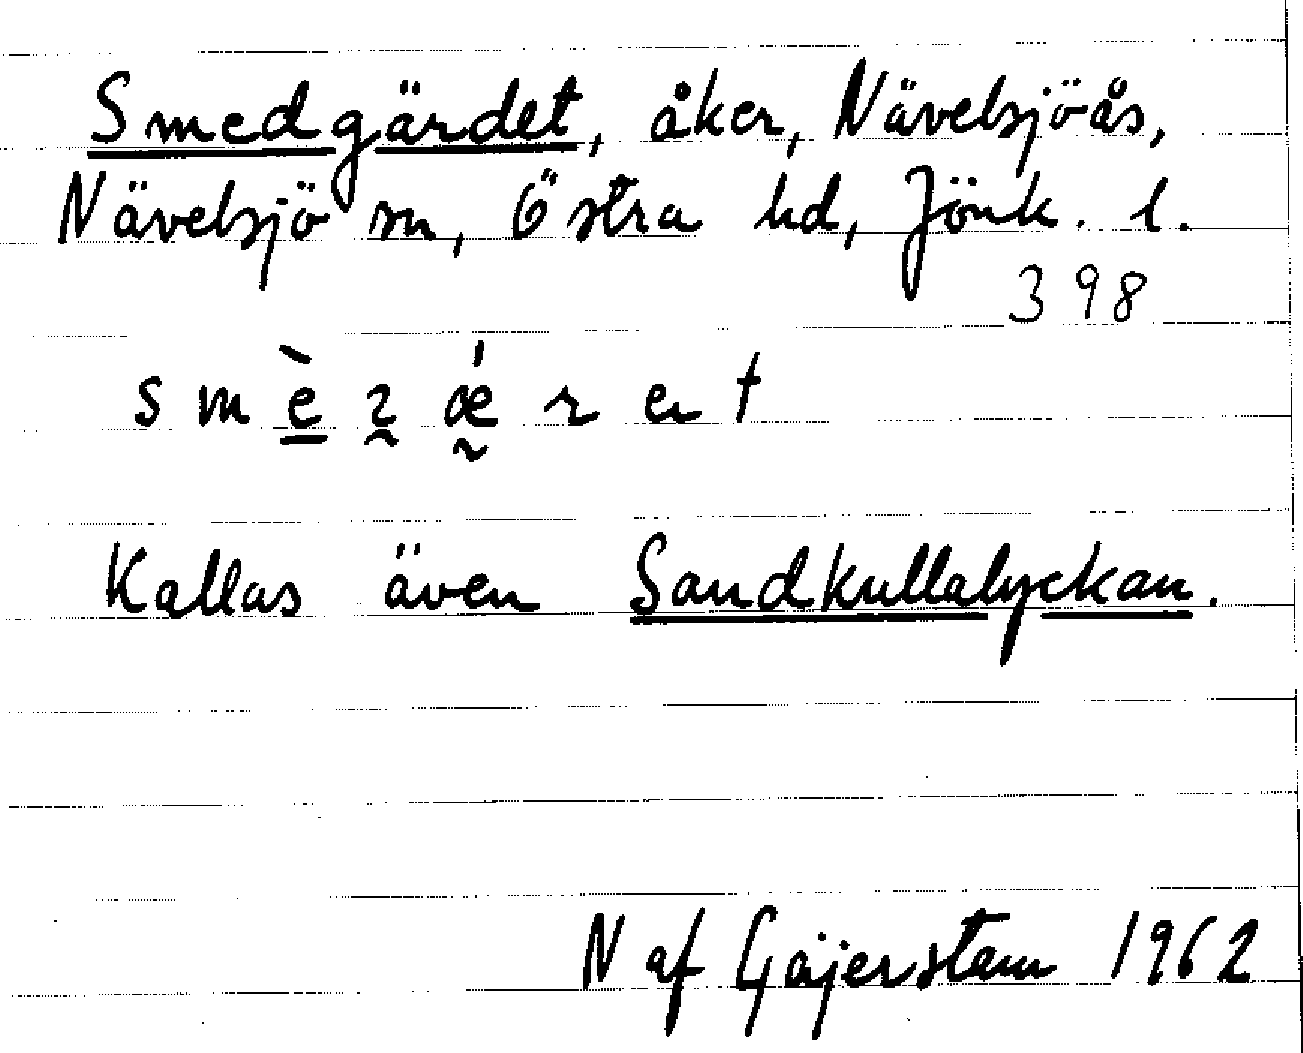 Smedgärdet, åker, Nävelsjöås,
Nävelsjö sn, Östra hd, Jönk. l.
398
Kallas även Sandkullalyckan.
N af Gajerstam 1962